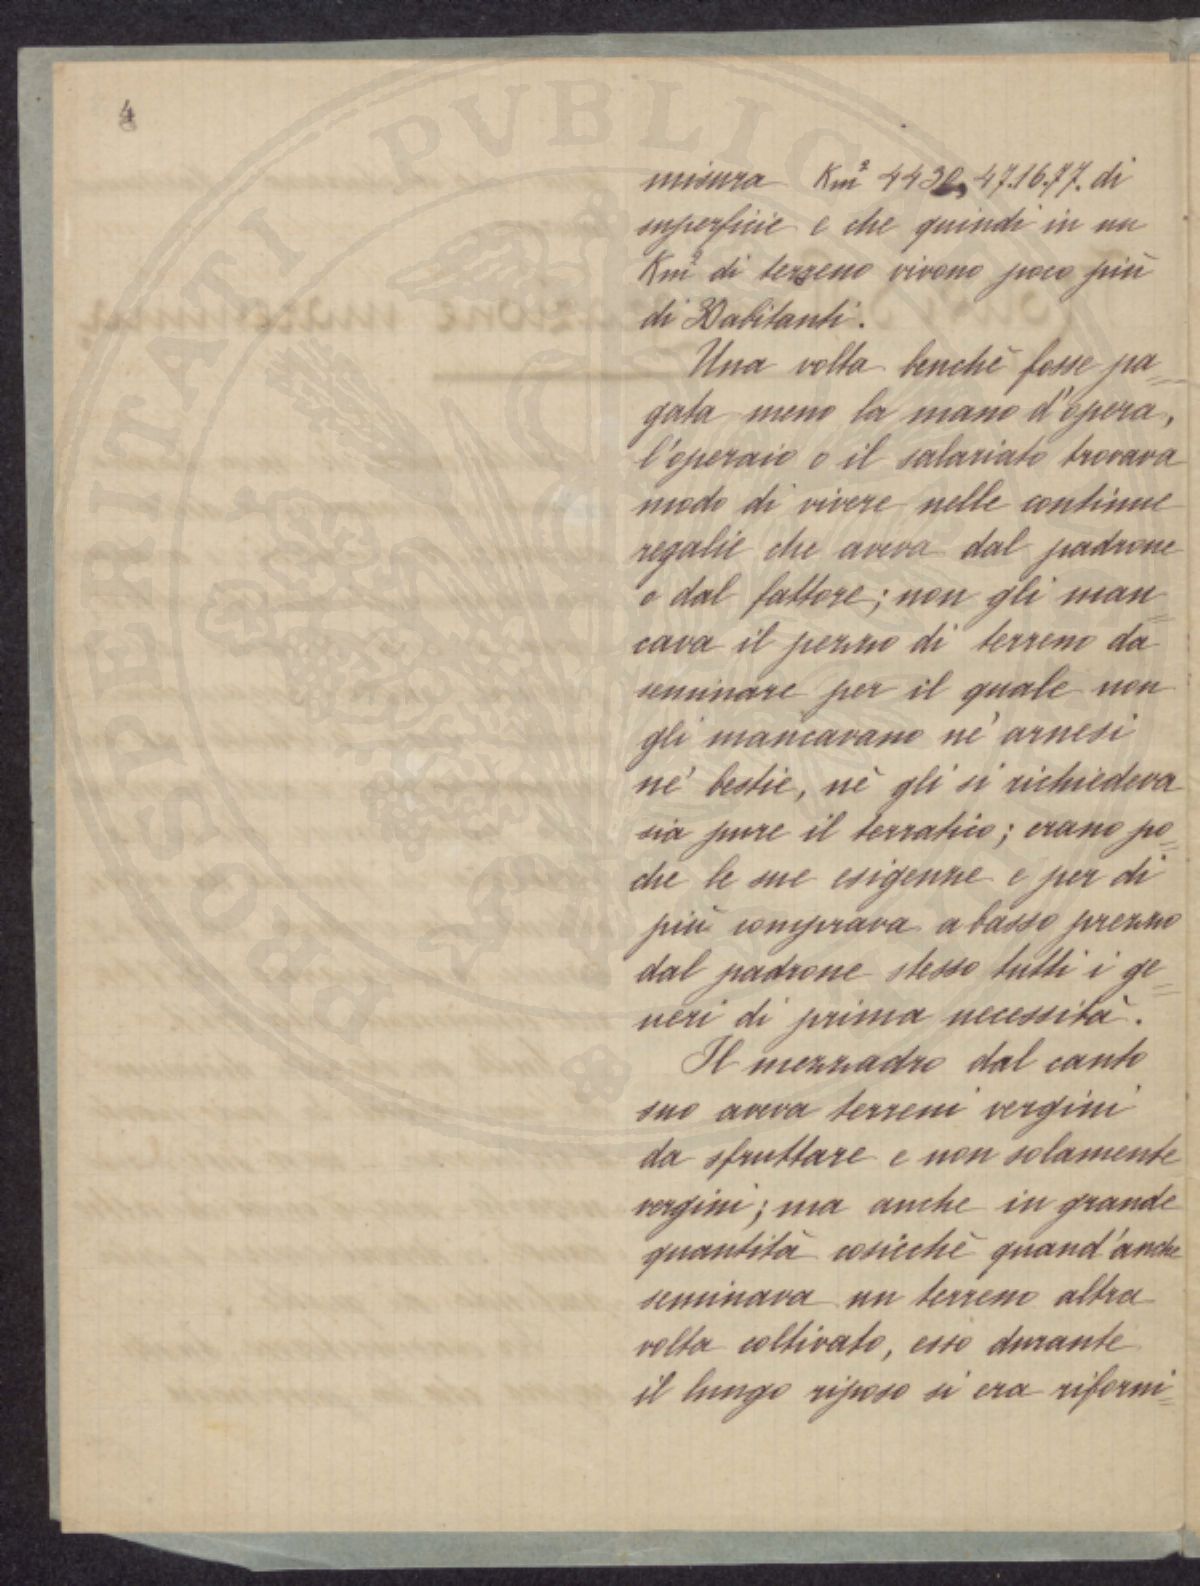 4
misura Km² 4430, 47.16.77. di
superficie e che quindi in un
Km² di terreno vivono poco più
di 30 abitanti.
Una volta benchè fosse pa=
gata meno la mano d'opera,
l'operaio o il salariato trovava
modo di vivere nelle continue
regalie che aveva dal padrone
o dal fattore; non gli man=
cava il pezzo di terreno da
seminare per il quale non
gli mancavano nè arnesi
nè bestie, nè gli si richiedeva
sia pure il terratico; erano po=
che le sue esigenze e per di
più comprava a basso prezzo
dal padrone stesso tutti i ge=
neri di prima necessità.
Il mezzadro dal canto
suo aveva terreni vergini
da sfruttare e non solamente
vergini; ma anche in grande
quantità cosicchè quand'anche
seminava un terreno altra
volta coltivato, esso durante
il lungo riposo si era riforni=
PROSPERITATI PVBLICAE